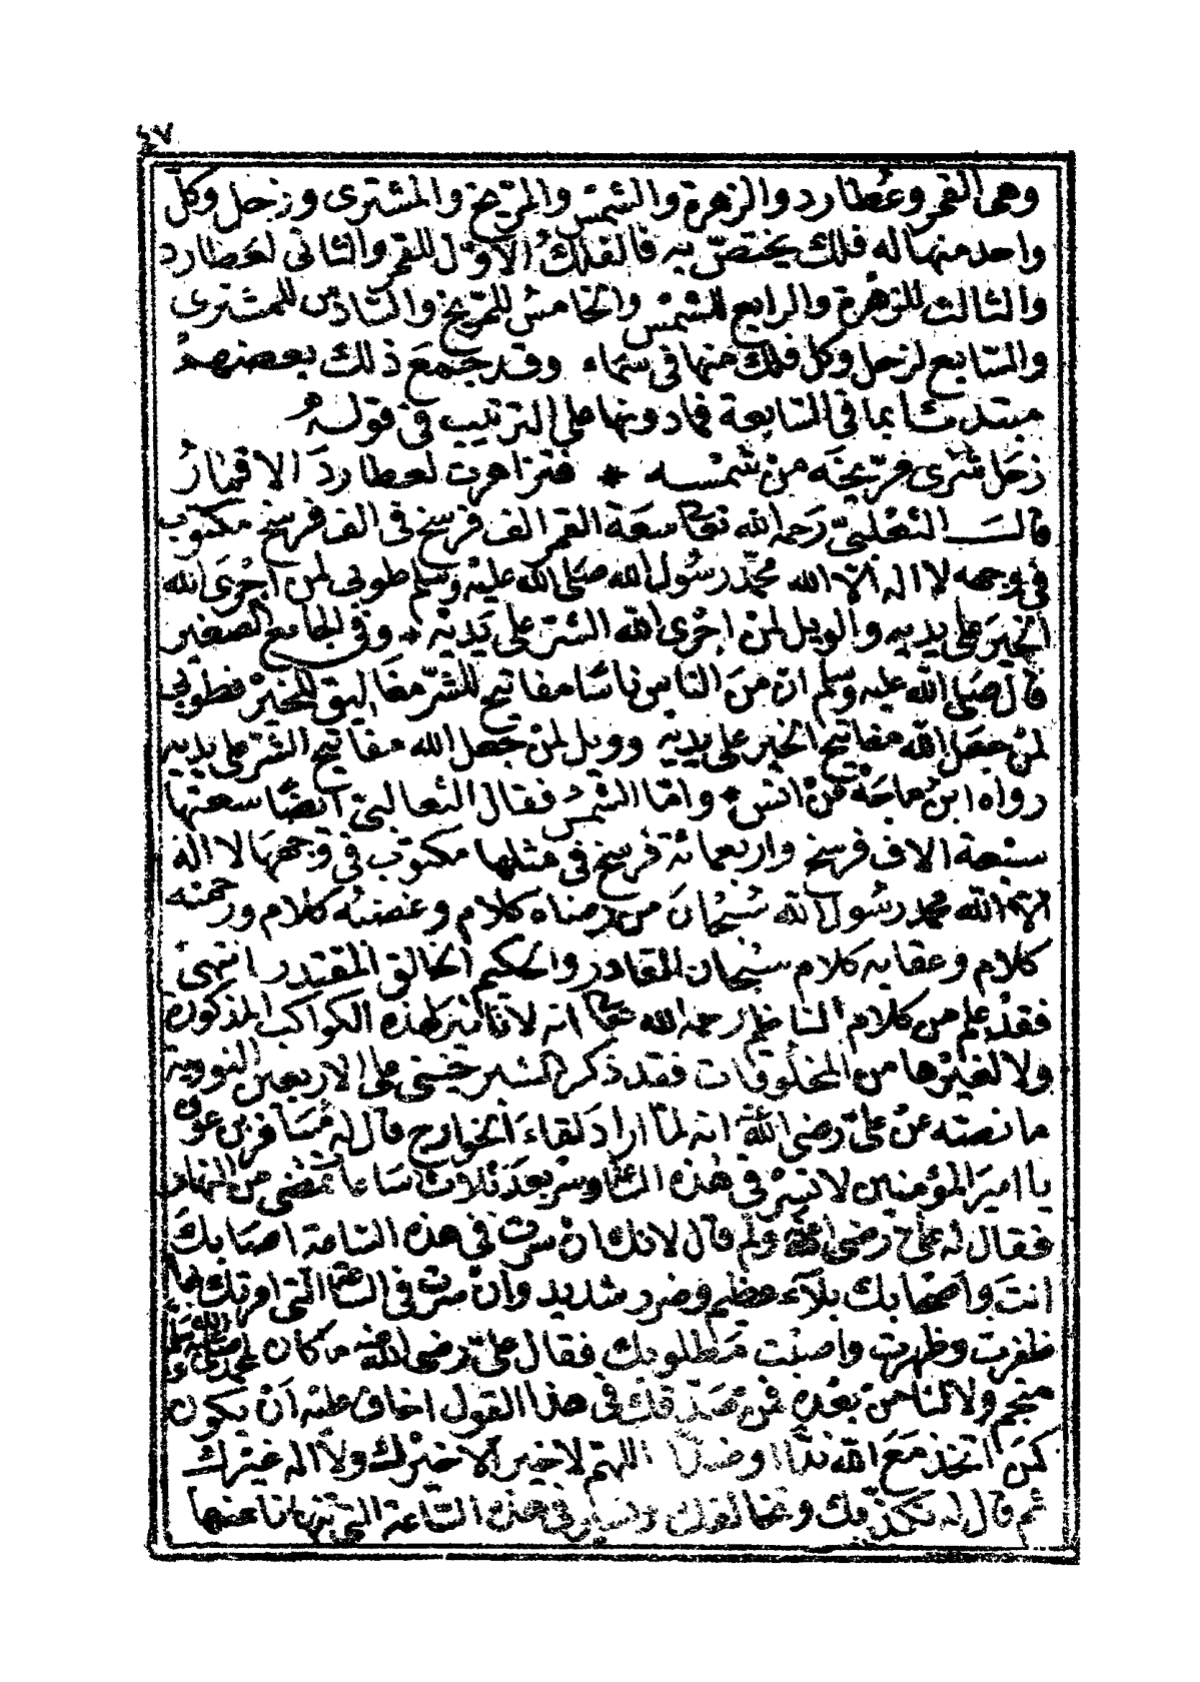 ٤٧
وهى القمر وعُطارد والزهرة والشمْس والمِرّيخ والمشترى وزحل وكلّ
واحد منها له فلك يختصّ به فالفلكُ الاوّل للقمر والثانى لعطارد
والثالث للزهرة والرابع للشمْس والخامسُ للمرّيخ والسّادس للمشترى
والسّابع لزحل وكل فلك منها فى سَماء وقد جمعَ ذلك بعضهمْ
مبتدئا بما فى السّابعة فما دونها على الترتيب فى قولهُ
زحَل شَرى مرّيخَه منْ شمْسه * فتزاهرت لعطاردَ الاقمارُ
قالـــَ الثعْلبىّ رَحمه الله تعا سعَة القمر الف فرسَخ فى الف فرسَخ مكتوب
فى وجهه لا اله الّا الله محمّد رسُول الله صَلى الله عليْه وسَلم طوبى لمن اجْرىَ الله
الخيرَ على يديه والويل لمنْ اجْرى الله الشرّ على يَديْه * وفى الجامع الصّغير
قال صَلى الله عليه وسَلم انّ منَ الناس ناسًا مفاتيح للشرّ مغاليق للخيْر فطوبى
لمنْ جعَل الله مفاتيح الخير على يديْه وويل لمنْ جعَل الله مفاتيح الشرّ على يديه
رواه ابنُ ماجَة عنْ انسْ * وامّا الشمْس فقال الثعالبىّ ايضًا سعتها
سبْعة الاف فرسَخ واربعمائة فرسَخ فى مثلها مكتوب فى وجهَها لا اله
الا الله محمد رسُول الله سُبْحانَ من رضاه كلام وغضبُه كلام ورحمته
كلام وعقابه كلام سبْحان القادر والحكيم الخالق المقتدر انتهىْ
فقدْ علم من كلام الناظم رحمه الله تعا انه لا تأثير لهذه الكواكب المذكورة
ولا لغيْرها من المخلوقات فقد ذكر الشبرخيتى على الاربعين النووية
ما نصّه عنْ علىّ رضى الله عنه انه لمّا ارادَ لقاءَ الخوارج قال له مُسَافر بن عوف
يا اميرَ المؤمنين لا تسِرْ فى هٰذه السّاعة وسرْ بعدَ ثلاث سَاعات تمضى من النهار
فقال له علىّ رضى الله عنه ولم قال لانك انْ سرت فى هذه السّاعة اصَابكَ
انتَ واصْحابك بلآء عظيم وضرر شديد وانْ سرْت فى السّاعة التى امرتك بها
ظفرت وظهرت واصبْت مَطلوبك فقال علىّ رضى الله عنه ما كان لمحمد صلى الله عليه وسلم
منجم ولا لنا منْ بعْده فمنْ صَدّقك فى هذا القول اخاف عليْه اَنْ يكون
كمَن اتخذ مَعَ الله ندًّا او ضدًّا اللهمّ لا خيرَ الّا خيْرك ولا اله غيْرك
ثم قال له نكذّبك ونخالفك ونسير فى هٰذه السّاعة التى تنهانا عنها